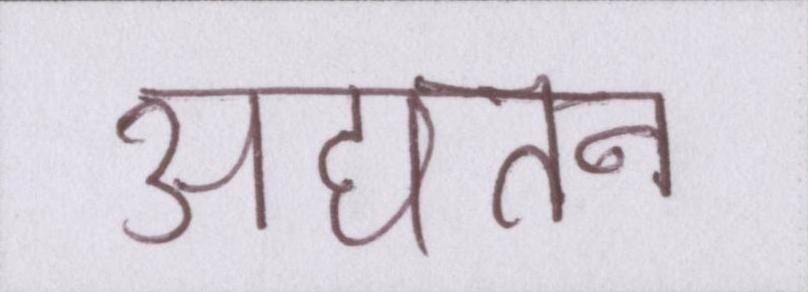 अद्यतन